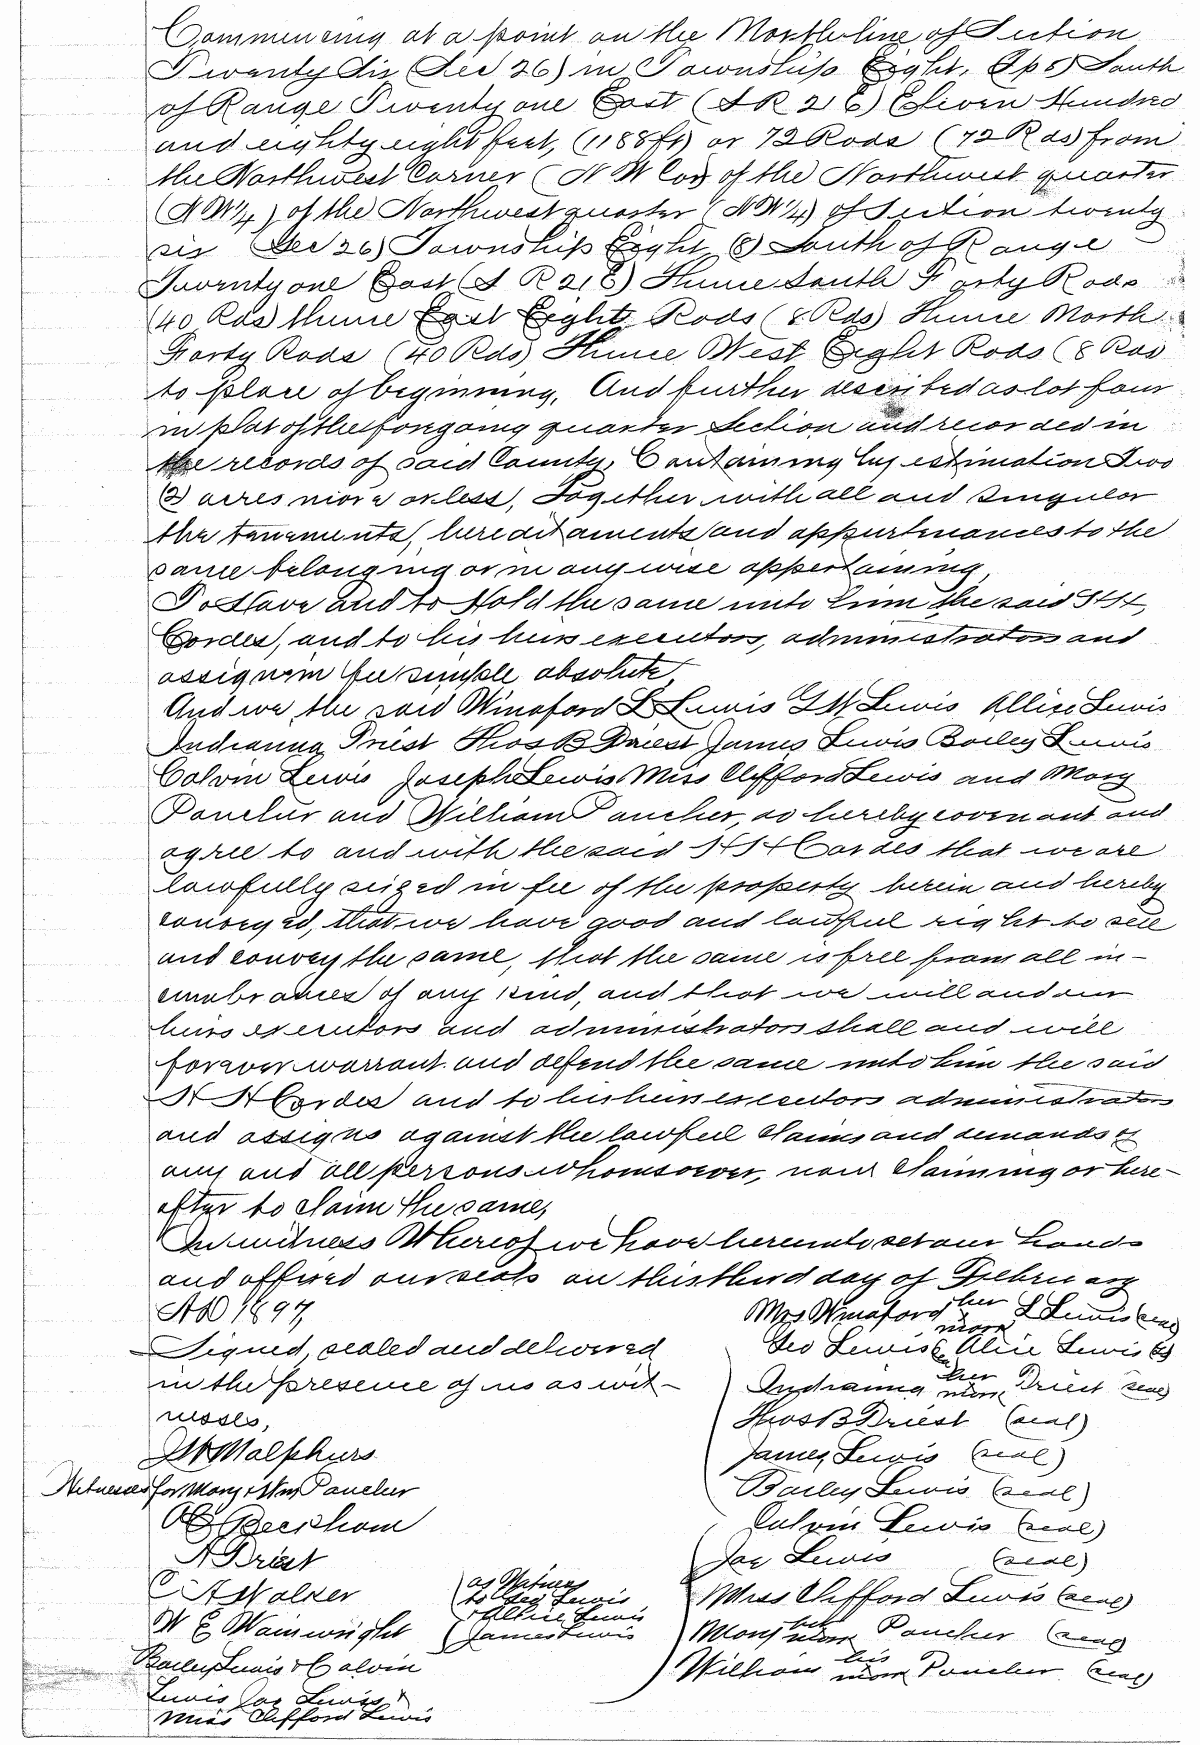 Commencing at a point on the North line of Section
Twenty Six (Sec 26) in Township Eight, (Tp 8) South
of Range Twenty one East (S R 21 E) Eleven Hundred
and eighty eight feet, (1188 ft) or 72 Rods (72 Rds) from
the Northwest Corner (N W Cor) of the Northwest quarter
(N W 1/4) of the Northwest quarter (N W 1/4) of Section twenty
six (Sec 26) Township Eight (8) South of Range
Twenty one East (S R 21 E) Thence South Forty Rods
(40 Rds) thence East Eight Rods (8 Rds) Thence North
Forty Rods (40 Rds) Thence West Eight Rods (8 Rds
to place of beginning, And further described as lot four
in plat of the foregoing quarter section and recorded in
the records of said County, Containing by estimation Two
(2) acres more or less, Together with all and singular
the tenements, hereditaments and appurtenances to the
same belonging or in any wise appertaining,
To Have and to Hold the same unto him the said H H
Cordes, and to his heirs executors, administrators and
assigns in fee simple absolute,
And we the said Winaford L Lewis G W Lewis Allice Lewis
Indianna Priest Thos B Priest James Lewis Bailey Lewis
Calvin Lewis Joseph Lewis Miss Clifford Lewis and Mary
Pancher and William Pancher, do hereby covenant and
agree to and with the said H H Cordes that we are
lawfully seized in fee of the property herein and hereby
conveyed, that we have good and lawful right to sell
and convey the same, that the same is free from all in-
cumbrances of any kind, and that we will and our
heirs executors and administrators shall and will
forever warrant and defend the same unto him the said
H H Cordes and to his heirs executors administrators
and assigns against the lawful claims and demands of
any and all persons whomsoever, now claiming or here-
after to claim the same,
In witness Whereof we have hereunto set our hands
and affixed our seals on this third day of February
AD 1897,
Mrs Winaford her mark L Lewis (seal)
Signed, sealed and delivered
Geo Lewis & Alice Lewis
in the presence of us as wit-
Indianna her mark Priest (seal)
nesses,
Thos B Priest (seal)
J W Malphurs
James Lewis (seal)
Witnesses for Mary & Wm Pancher
Bailey Lewis (seal)
Beesham
Calvin Lewis (seal)
A Priest
Joe Lewis (seal)
C A Walker
as Witness
to Geo Lewis
& Allice Lewis
James Lewis
Miss Clifford Lewis (seal)
W E Wainwright
Mary her mark Pancher (seal)
Bailey Lewis & Calvin
William his mark Pancher (seal)
Lewis Joe Lewis &
Miss Clifford Lewis